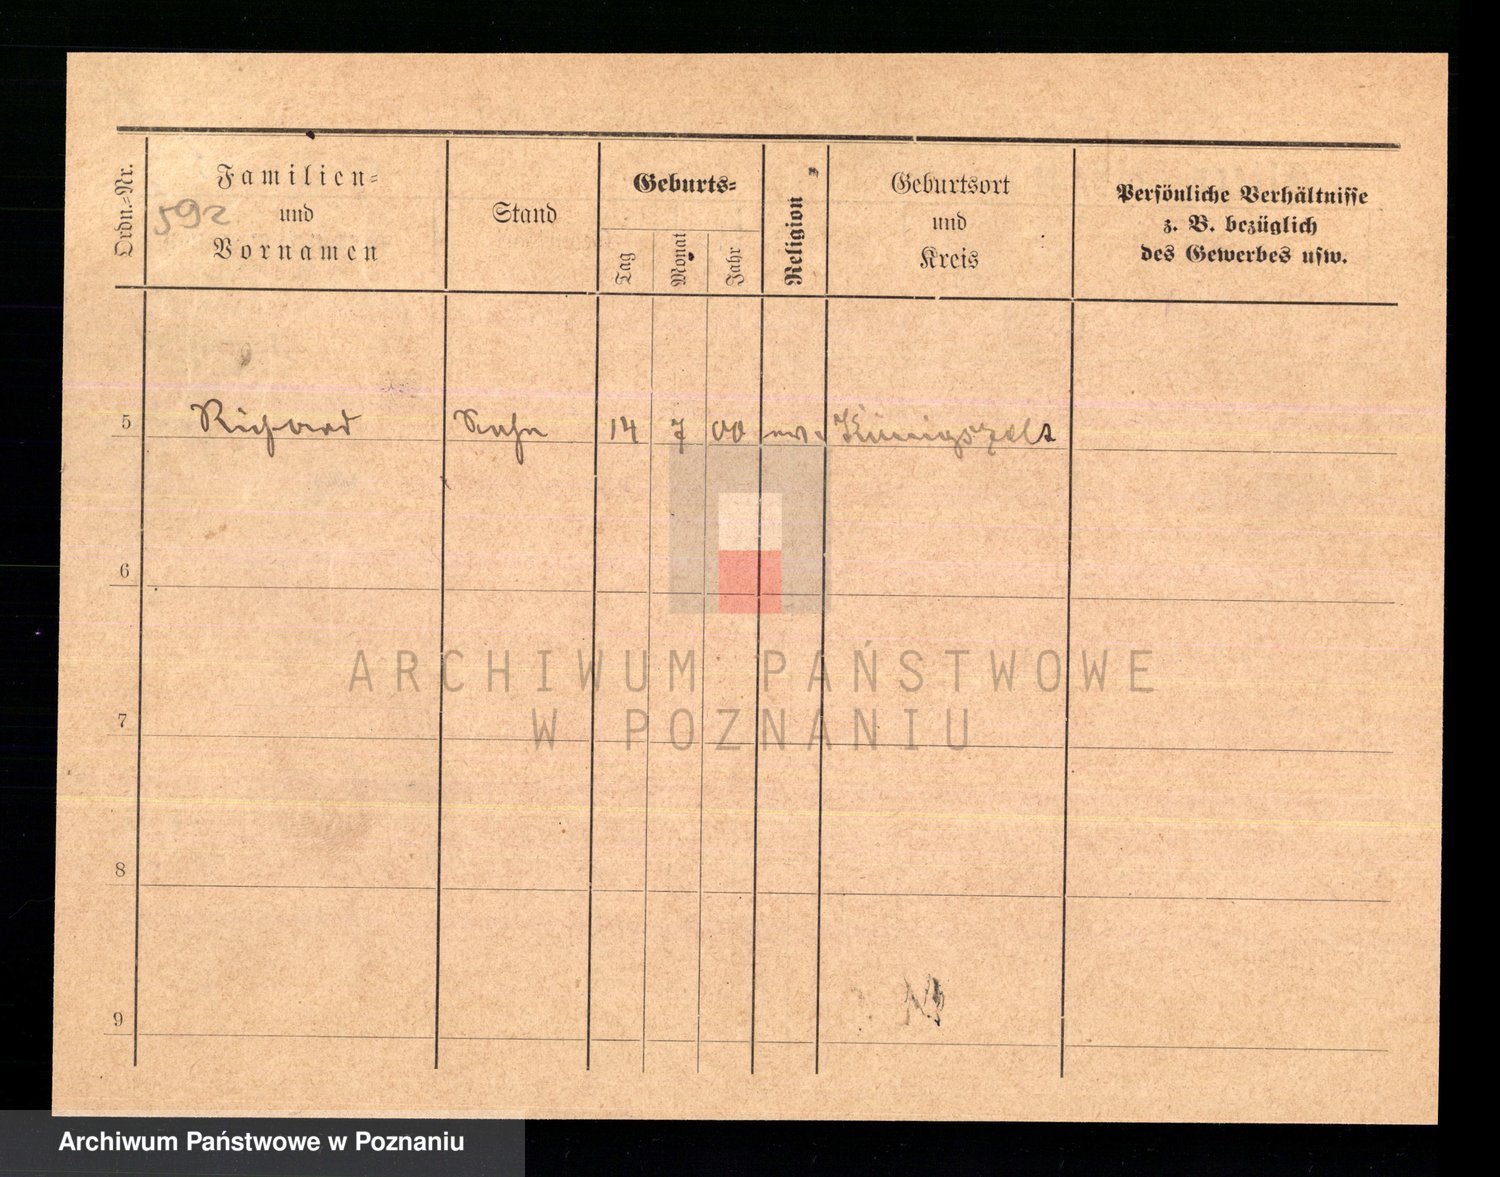 Ordn.-Nr.
Familien-
und
Vornamen
592
Stand
Geburts-
Tag
Monat
Jahr
Religion
Geburtsort
und
Kreis
Persönliche Verhältnisse
z. B. bezüglich
des Gewerbes usw.
5 Richard Sohn 14 7 00 ev. Königszelt
6
7
8
9
ARCHIWUM PAŃSTWOWE
W POZNANIU
Archiwum Państwowe w Poznaniu